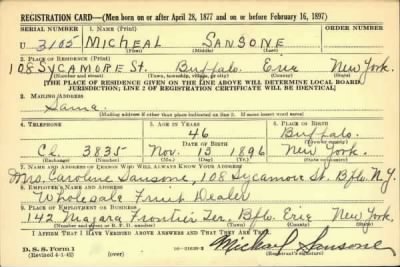 REGISTRATION CARD—(Men born on or after April 28, 1877 and on or before February 16, 1897)
SERIAL NUMBER 1. NAME (Print) ORDER NUMBER
U 3105 MICHEAL SANSONE
(First) (Middle) (Last)
2. PLACE OF RESIDENCE (Print)
108 SYCAMORE St. Buffalo. Erie New York.
(Number and street) (Town, township, village, or city) (County) (State)
[THE PLACE OF RESIDENCE GIVEN ON THE LINE ABOVE WILL DETERMINE LOCAL BOARD
JURISDICTION; LINE 2 OF REGISTRATION CERTIFICATE WILL BE IDENTICAL]
3. MAILING ADDRESS
Same.
[Mailing address if other than place indicated on line 2. If same insert word same]
4. TELEPHONE 5. AGE IN YEARS 6. PLACE OF BIRTH
46 Buffalo.
DATE OF BIRTH (Town or county)
CL. 3835 Nov. 13 1896 New York.
(Exchange) (Number) (Mo.) (Day) (Yr.) (State or country)
7. NAME AND ADDRESS OF PERSON WHO WILL ALWAYS KNOW YOUR ADDRESS
Mrs. Caroline Sansone, 108 Sycamore St. Bflo. N.Y.
8. EMPLOYER'S NAME AND ADDRESS
Wholesale Fruit Dealer
9. PLACE OF EMPLOYMENT OR BUSINESS
142 Niagara Frontier Ter. Bflo. Erie New York.
(Number and street or R. F. D. number) (Town) (County) (State)
I AFFIRM THAT I HAVE VERIFIED ABOVE ANSWERS AND THAT THEY ARE TRUE.
D. S. S. Form 1
(Revised 4-1-42) (over) 16—21630-2 Michael Sansone